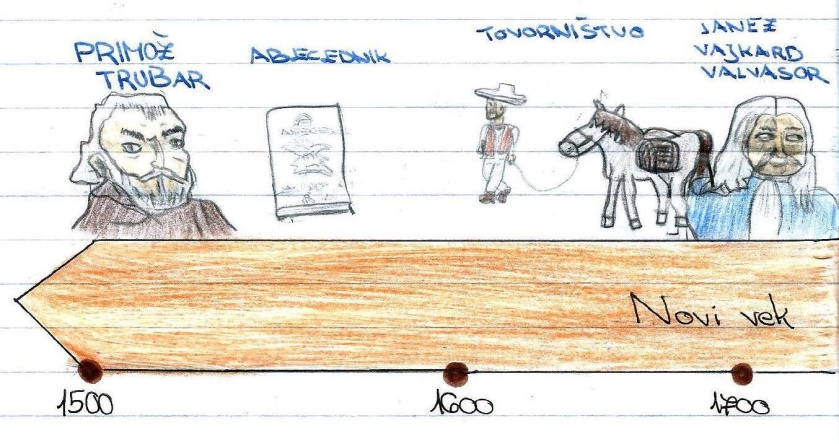 PRIMOŽ
TRUBAR
ABECEDNIK
TOVORNIŠTVO
JANEZ
VAJKARD
VALVASOR
Novi vek
1500
1600
1700